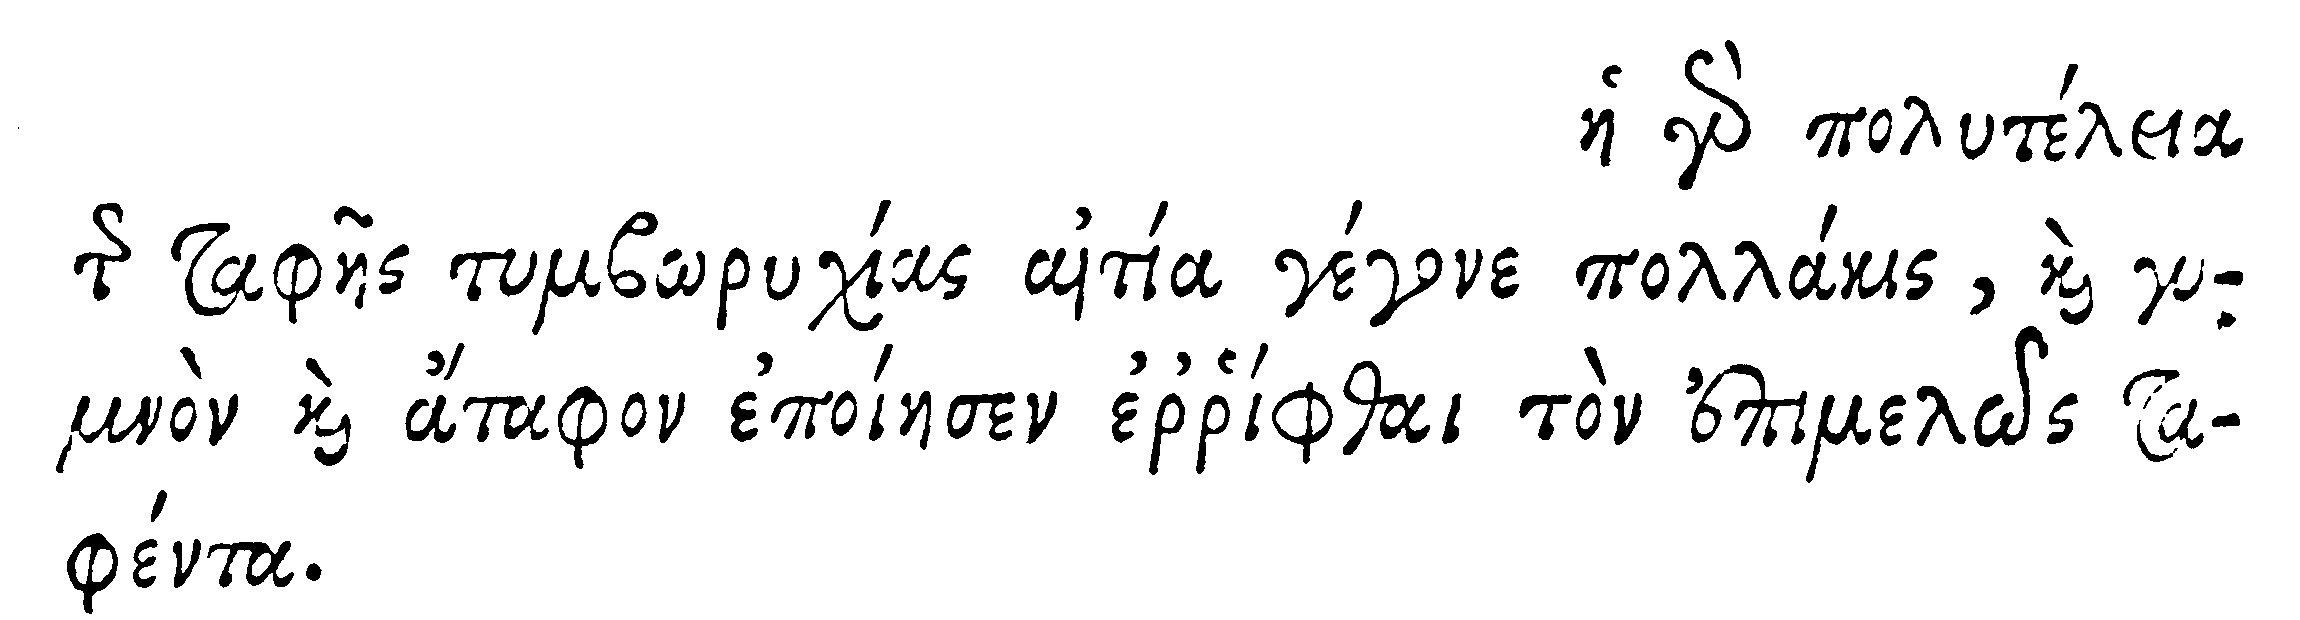 ἡ γὰρ πολυτέλεια
τῆς ταφῆς τυμβωρυχίας αἰτία γέγονε πολλάκις, καὶ γυ-
μνὸν καὶ ἄταφον ἐποίησεν ἐῤῥίφθαι τὸν ἐπιμελῶς τα-
φέντα.